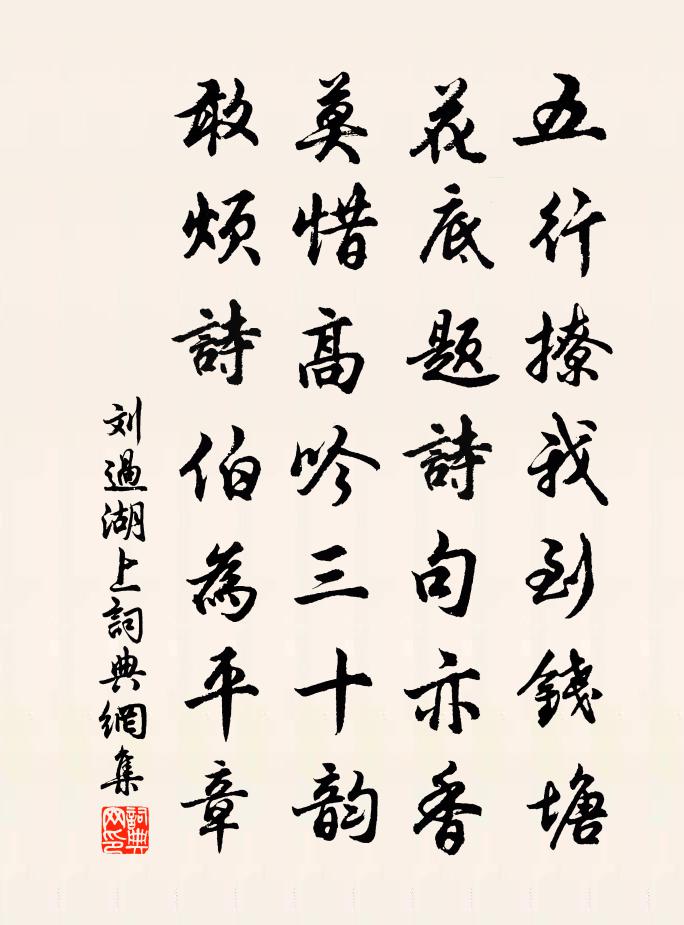 五行撩我到錢塘
花底題詩句亦香
莫惜高吟三十韵
敢煩詩伯為平章
刘過湖上詞典網集
詞典
网印